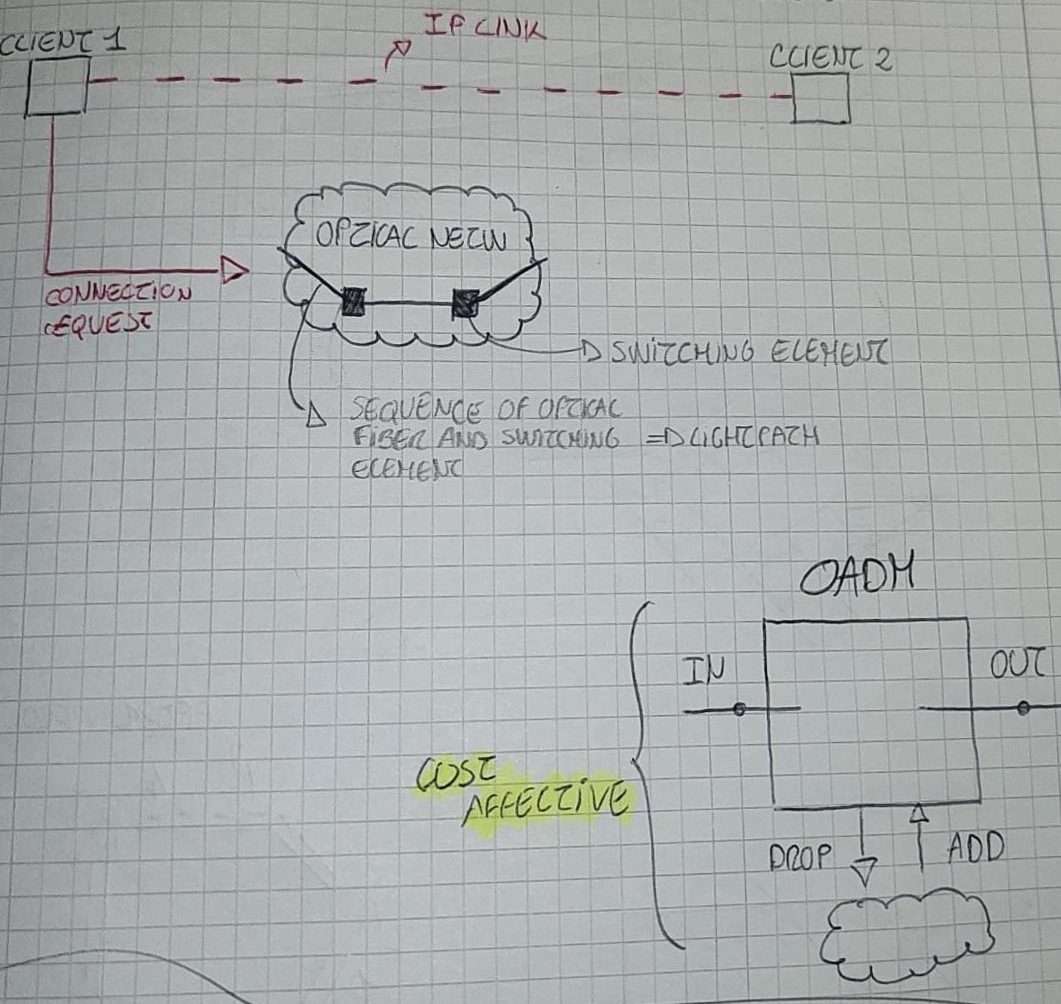 CLIENT 1
IP LINK
CLIENT 2
OPTICAL NETW
CONNECTION
REQUEST
SWITCHING ELEMENT
SEQUENCE OF OPTICAL
FIBER AND SWITCHING => LIGHTPATH
ELEMENT
OADM
IN
OUT
COST
AFFECTIVE
DROP
ADD